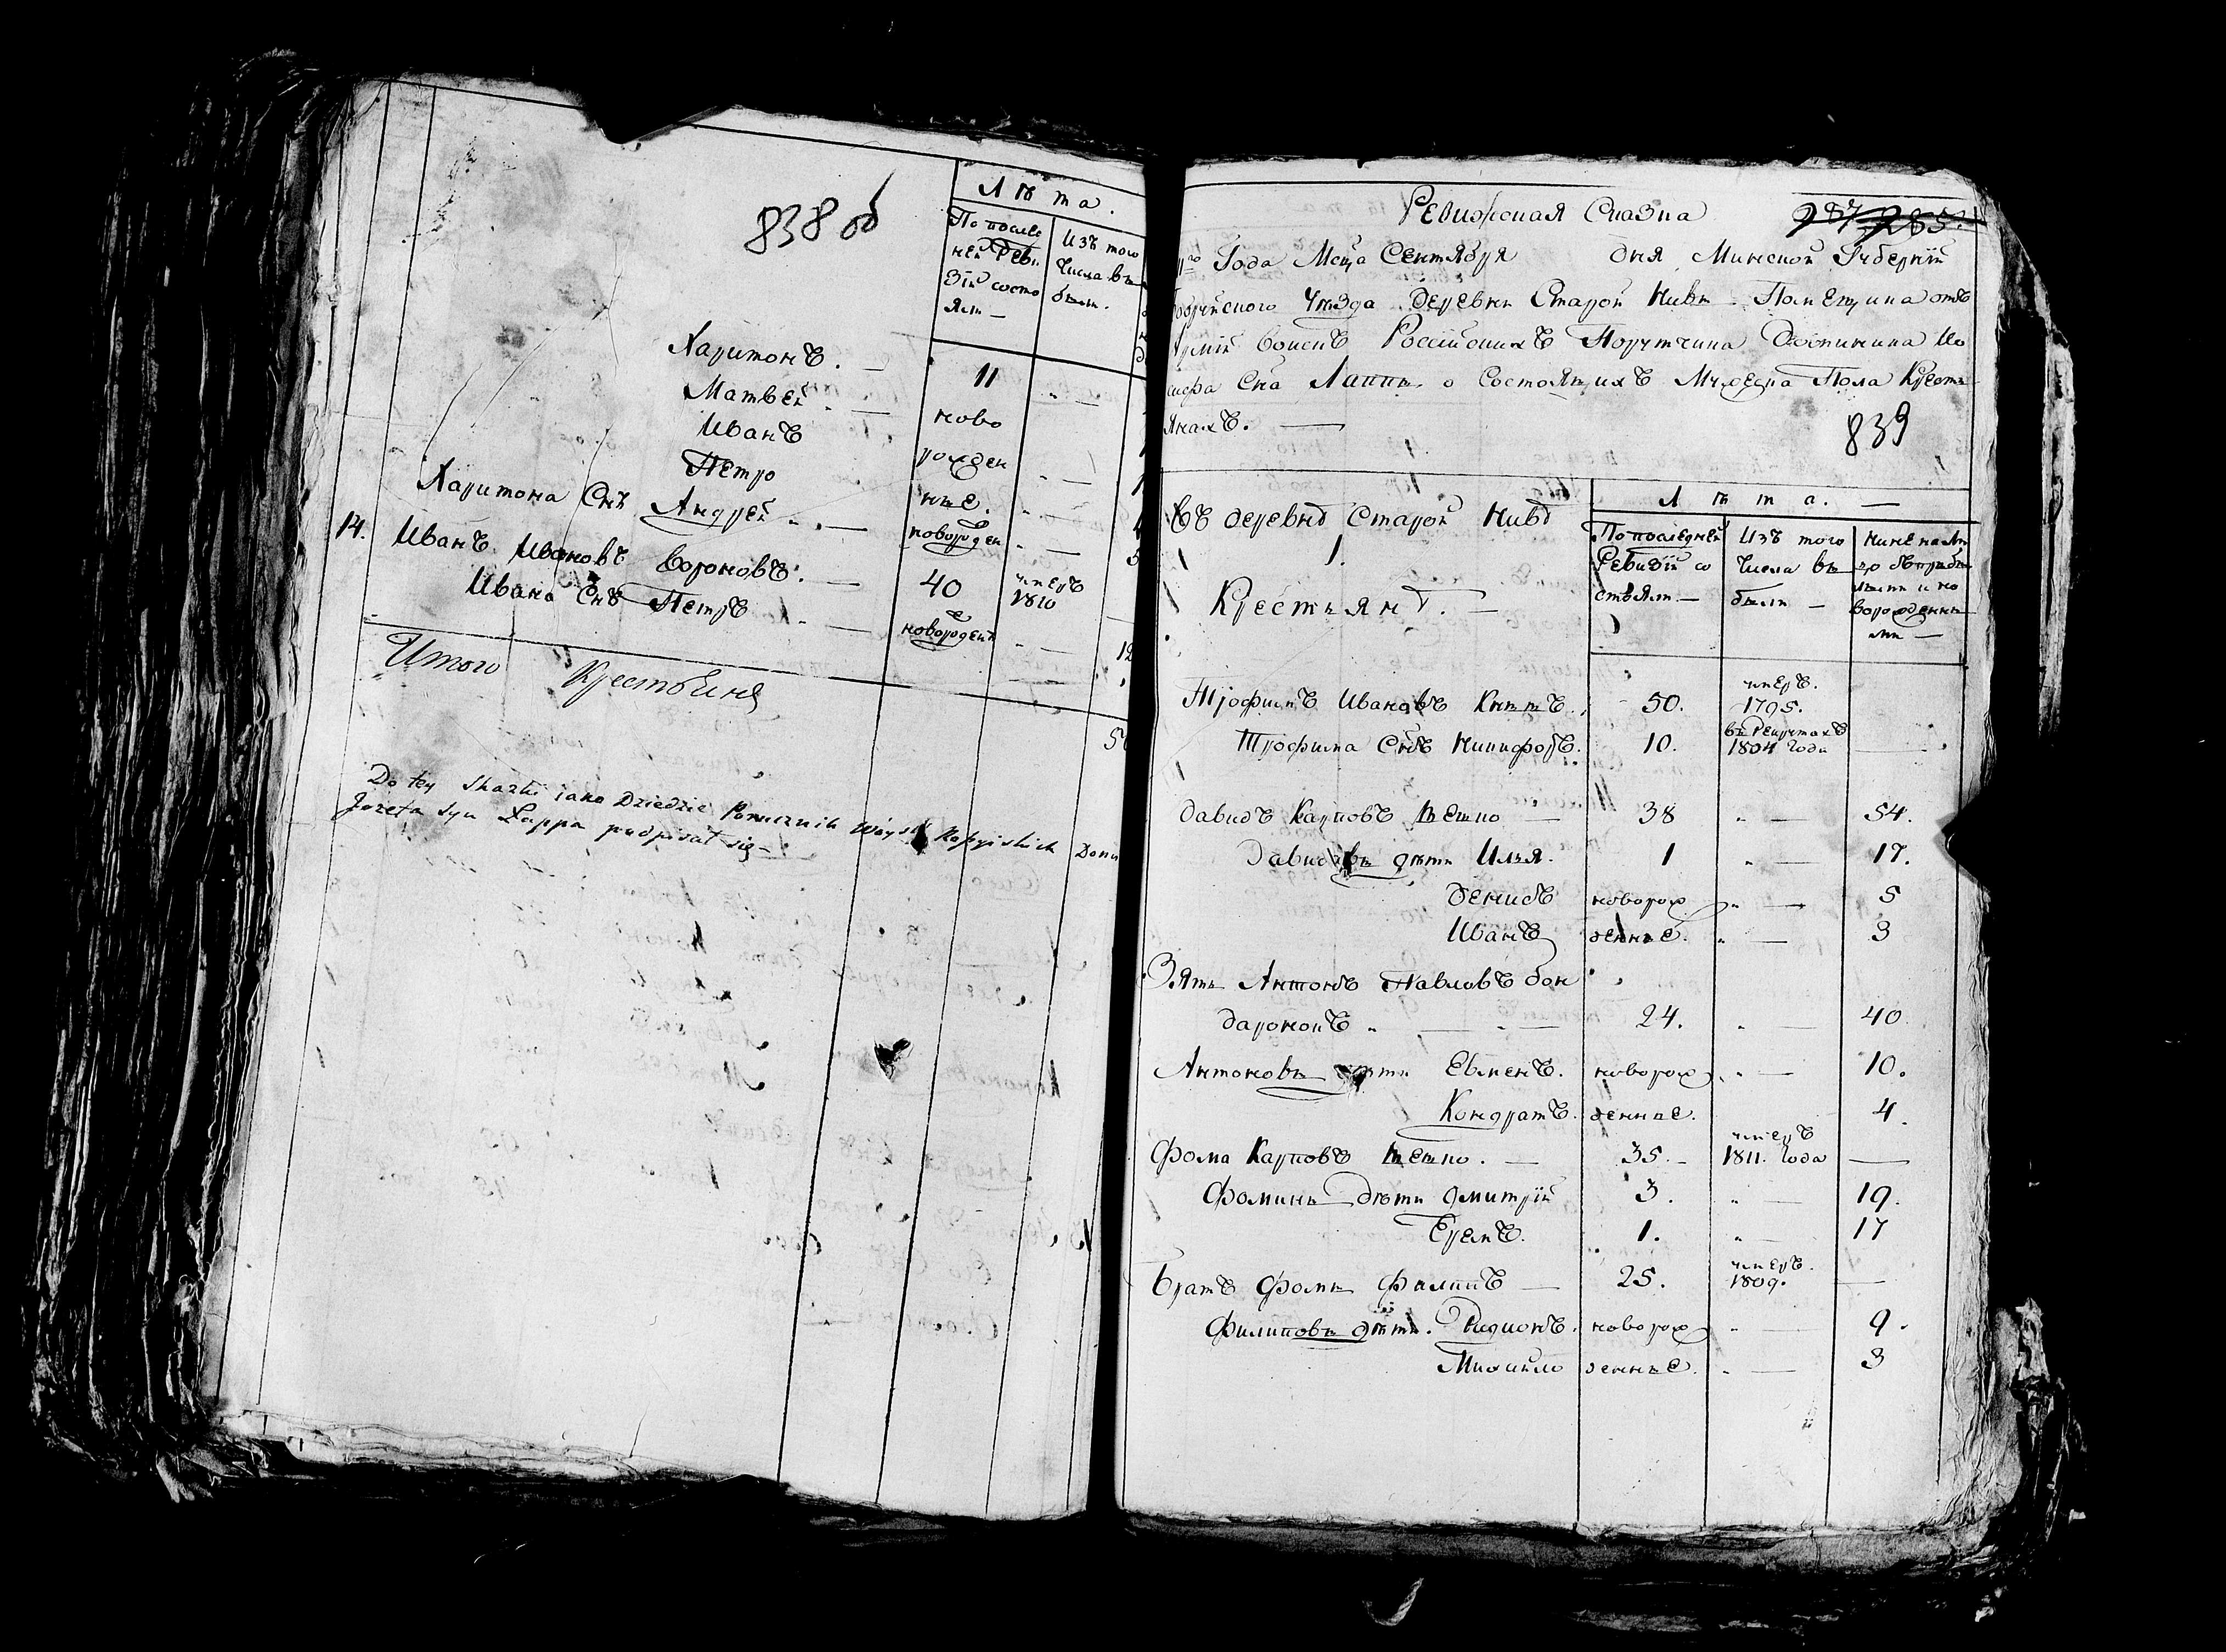 838 об
Лѣта.
По после
ней Реви
зіи состо
ялъ —
Изъ того
числа вы
былъ.
Харитонъ. — 11
Матвей — ново
Иванъ рожден
Петро ные.
Харитона Снъ Андрей — новорожден
14. Иванъ Ивановъ Вороновъ. — 40 умеръ 1810
Ивана Снъ Петръ — новорожден 12
Итого Крестьянъ
Do tey Skazki iako Dziedzic Porucznik Woysk Rossyiskich
Jozefa syn Łappa podpisał się —
Ревижская Сказка
Года Мсца Сентября дня Минской Губерніи
Уѣзда Деревни Старой Нивы Помещика отъ
Арміи воискъ Россійскихъ Порутчика Доминика Ио
сифа Сна Лаппы о Состоящихъ Мужеска Пола Кресть
янахъ. —
839
Въ деревнѣ Старой Нивѣ
1.
Крестьянъ. —
Лѣта. —
По последней
Ревизіи со
стоялъ —
Изъ того
числа вы
былъ —
Ныне на лицо
Трофимъ Ивановъ 50. умеръ. 1795.
Трофима Снъ Никифоръ. 10. въ Рекрутахъ 1804 года —
Давидъ Карповъ — 38 — 54.
Давидовы дѣти Илья. 1 — 17.
Денисъ новорож — 5
Иванъ денные. — 3
Зять Антонъ Павловъ Бон
даронокъ — 24. — 40
Антоновы дѣти Евменъ. новорож — 10.
Кондратъ. денные. 4.
Фома Карповъ — 35. — умеръ 1811. года —
Фомины дѣти Дмитрій 3. — 19.
Еремъ. 1. — 17
Братъ Фомы Филипъ — 25. умеръ. 1809. —
Филиповы дѣти. Родионъ. новорож — 9.
Михайло денные. — 3